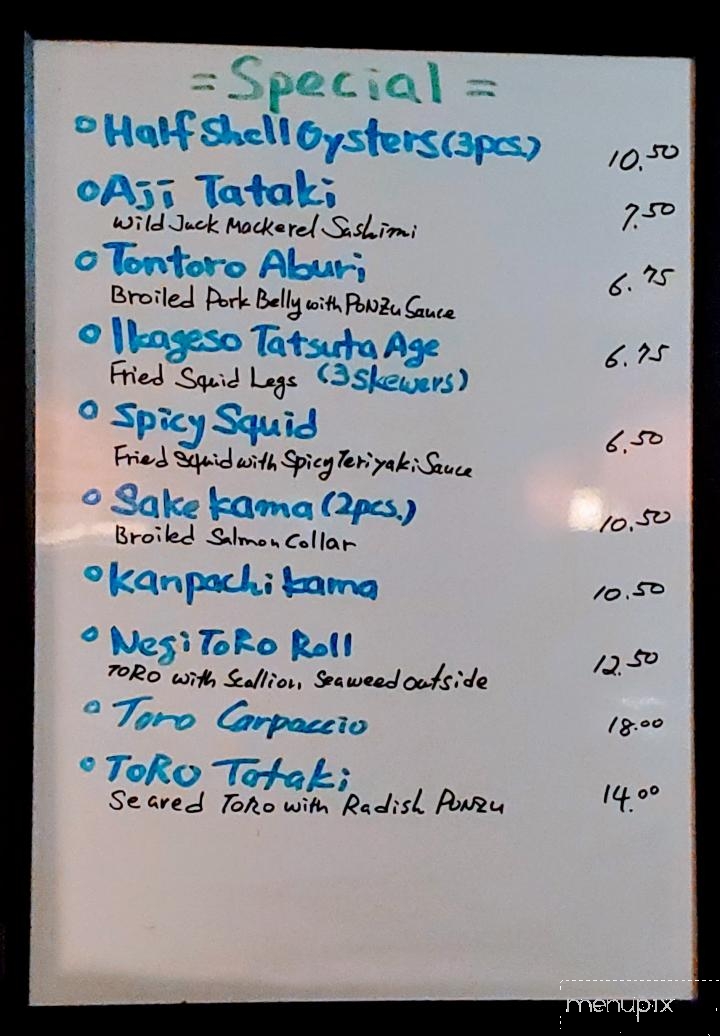 = Special =
Half Shell Oysters (3pcs.) 10.50
Aji Tataki 7.50
Wild Jack Mackerel Sashimi
Tontoro Aburi 6.75
Broiled Pork Belly with Ponzu Sauce
Ikageso Tatsuta Age 6.75
Fried Squid Legs (3 skewers)
Spicy Squid 6.50
Fried Squid with Spicy Teriyaki Sauce
Sake kama (2pcs.) 10.50
Broiled Salmon Collar
Kanpachi kama 10.50
Negi ToRo Roll 12.50
TORO with Scallion, Seaweed outside
Toro Carpaccio 18.00
ToRo Tataki 14.00
Seared Toro with Radish Ponzu
menupix